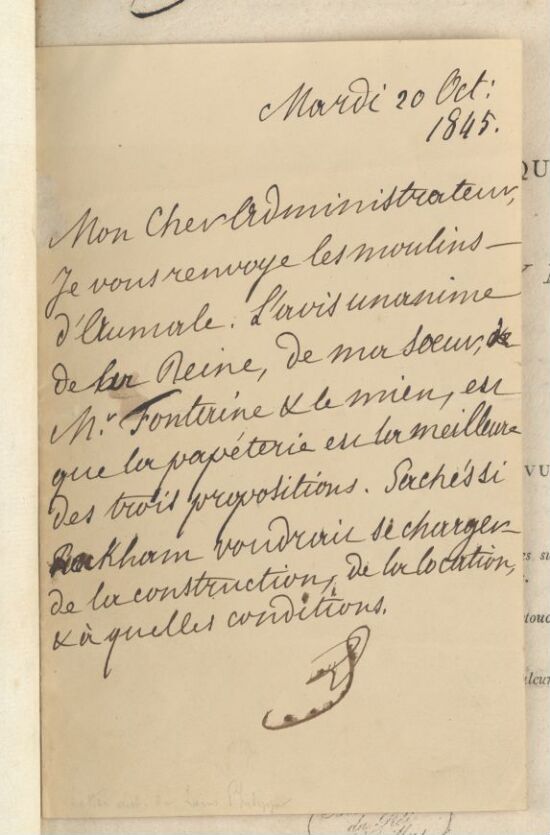 Mardi 20 Oct:
1845.
Mon Cher Administrateur,
Je vous renvoye les moulins –
d'Aumale. L'avis unanime
de la Reine, de ma sœur, de
Mr. Fontaine & le mien, est
que la papéterie est la meilleure
des trois propositions. Sachés si
Packham voudrait se charger
de la construction, de la location,
& à quelles conditions.
QU
VU